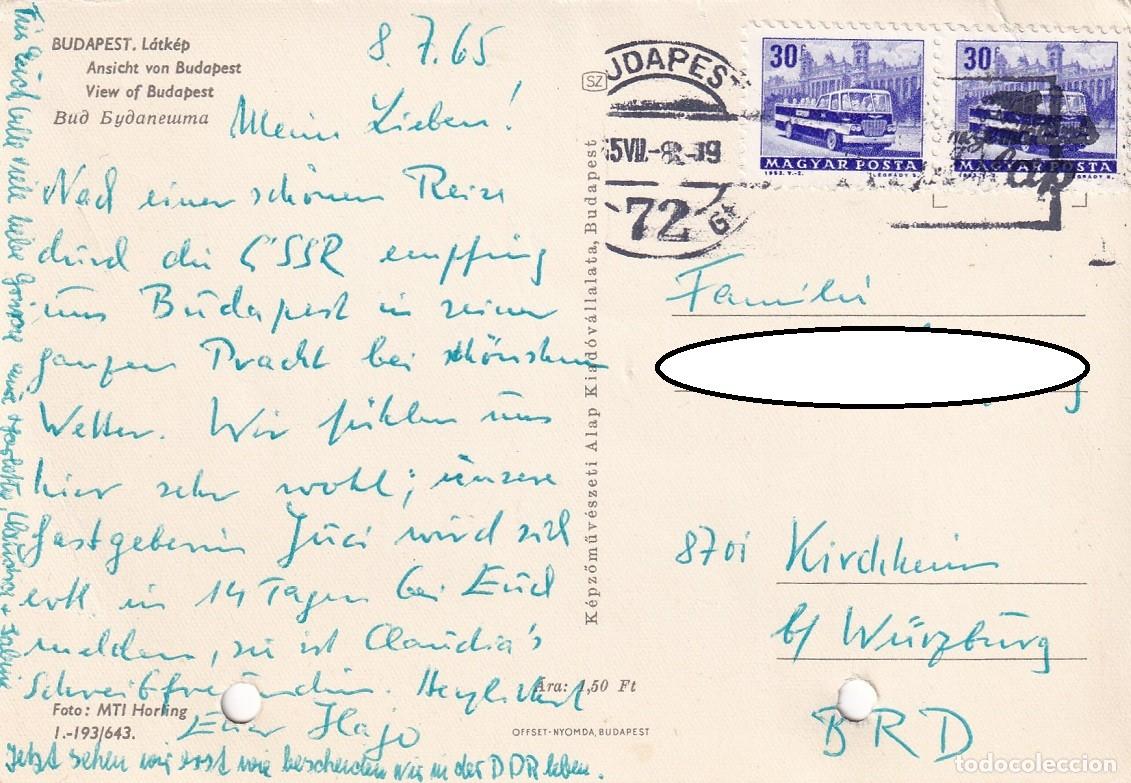 BUDAPEST. Látkép
Ansicht von Budapest
View of Budapest
Вид Будапешта
8.7.65
Meine Lieben!
Nach einer schönen Reise
durch die ČSSR empfing
uns Budapest in seiner
ganzen Pracht bei schönstem
Wetter. Wir fühlen uns
hier sehr wohl; unsere
Gastgeberin Juci wird sich
evtl in 14 Tagen bei Euch
melden, sie ist Claudia's
Schreibfreundin. Herzlichst
Euer Hajo
Jetzt sehen wir erst wie bescheiden wir in der DDR leben.
Für Euch alle viele liebe Grüsse
Ára: 1,50 Ft
Foto: MTI Horling
1.-193/643.
OFFSET-NYOMDA, BUDAPEST
Képzőművészeti Alap Kiadóvállalata, Budapest
SZ
UDAPEST
65VII.-8.-19
72
30f
MAGYAR POSTA
1963. V.-Z.
LÉGRÁDY S.
30f
MAGYAR POSTA
Familie
8701 Kirchheim
b/ Würzburg
BRD
todocoleccion